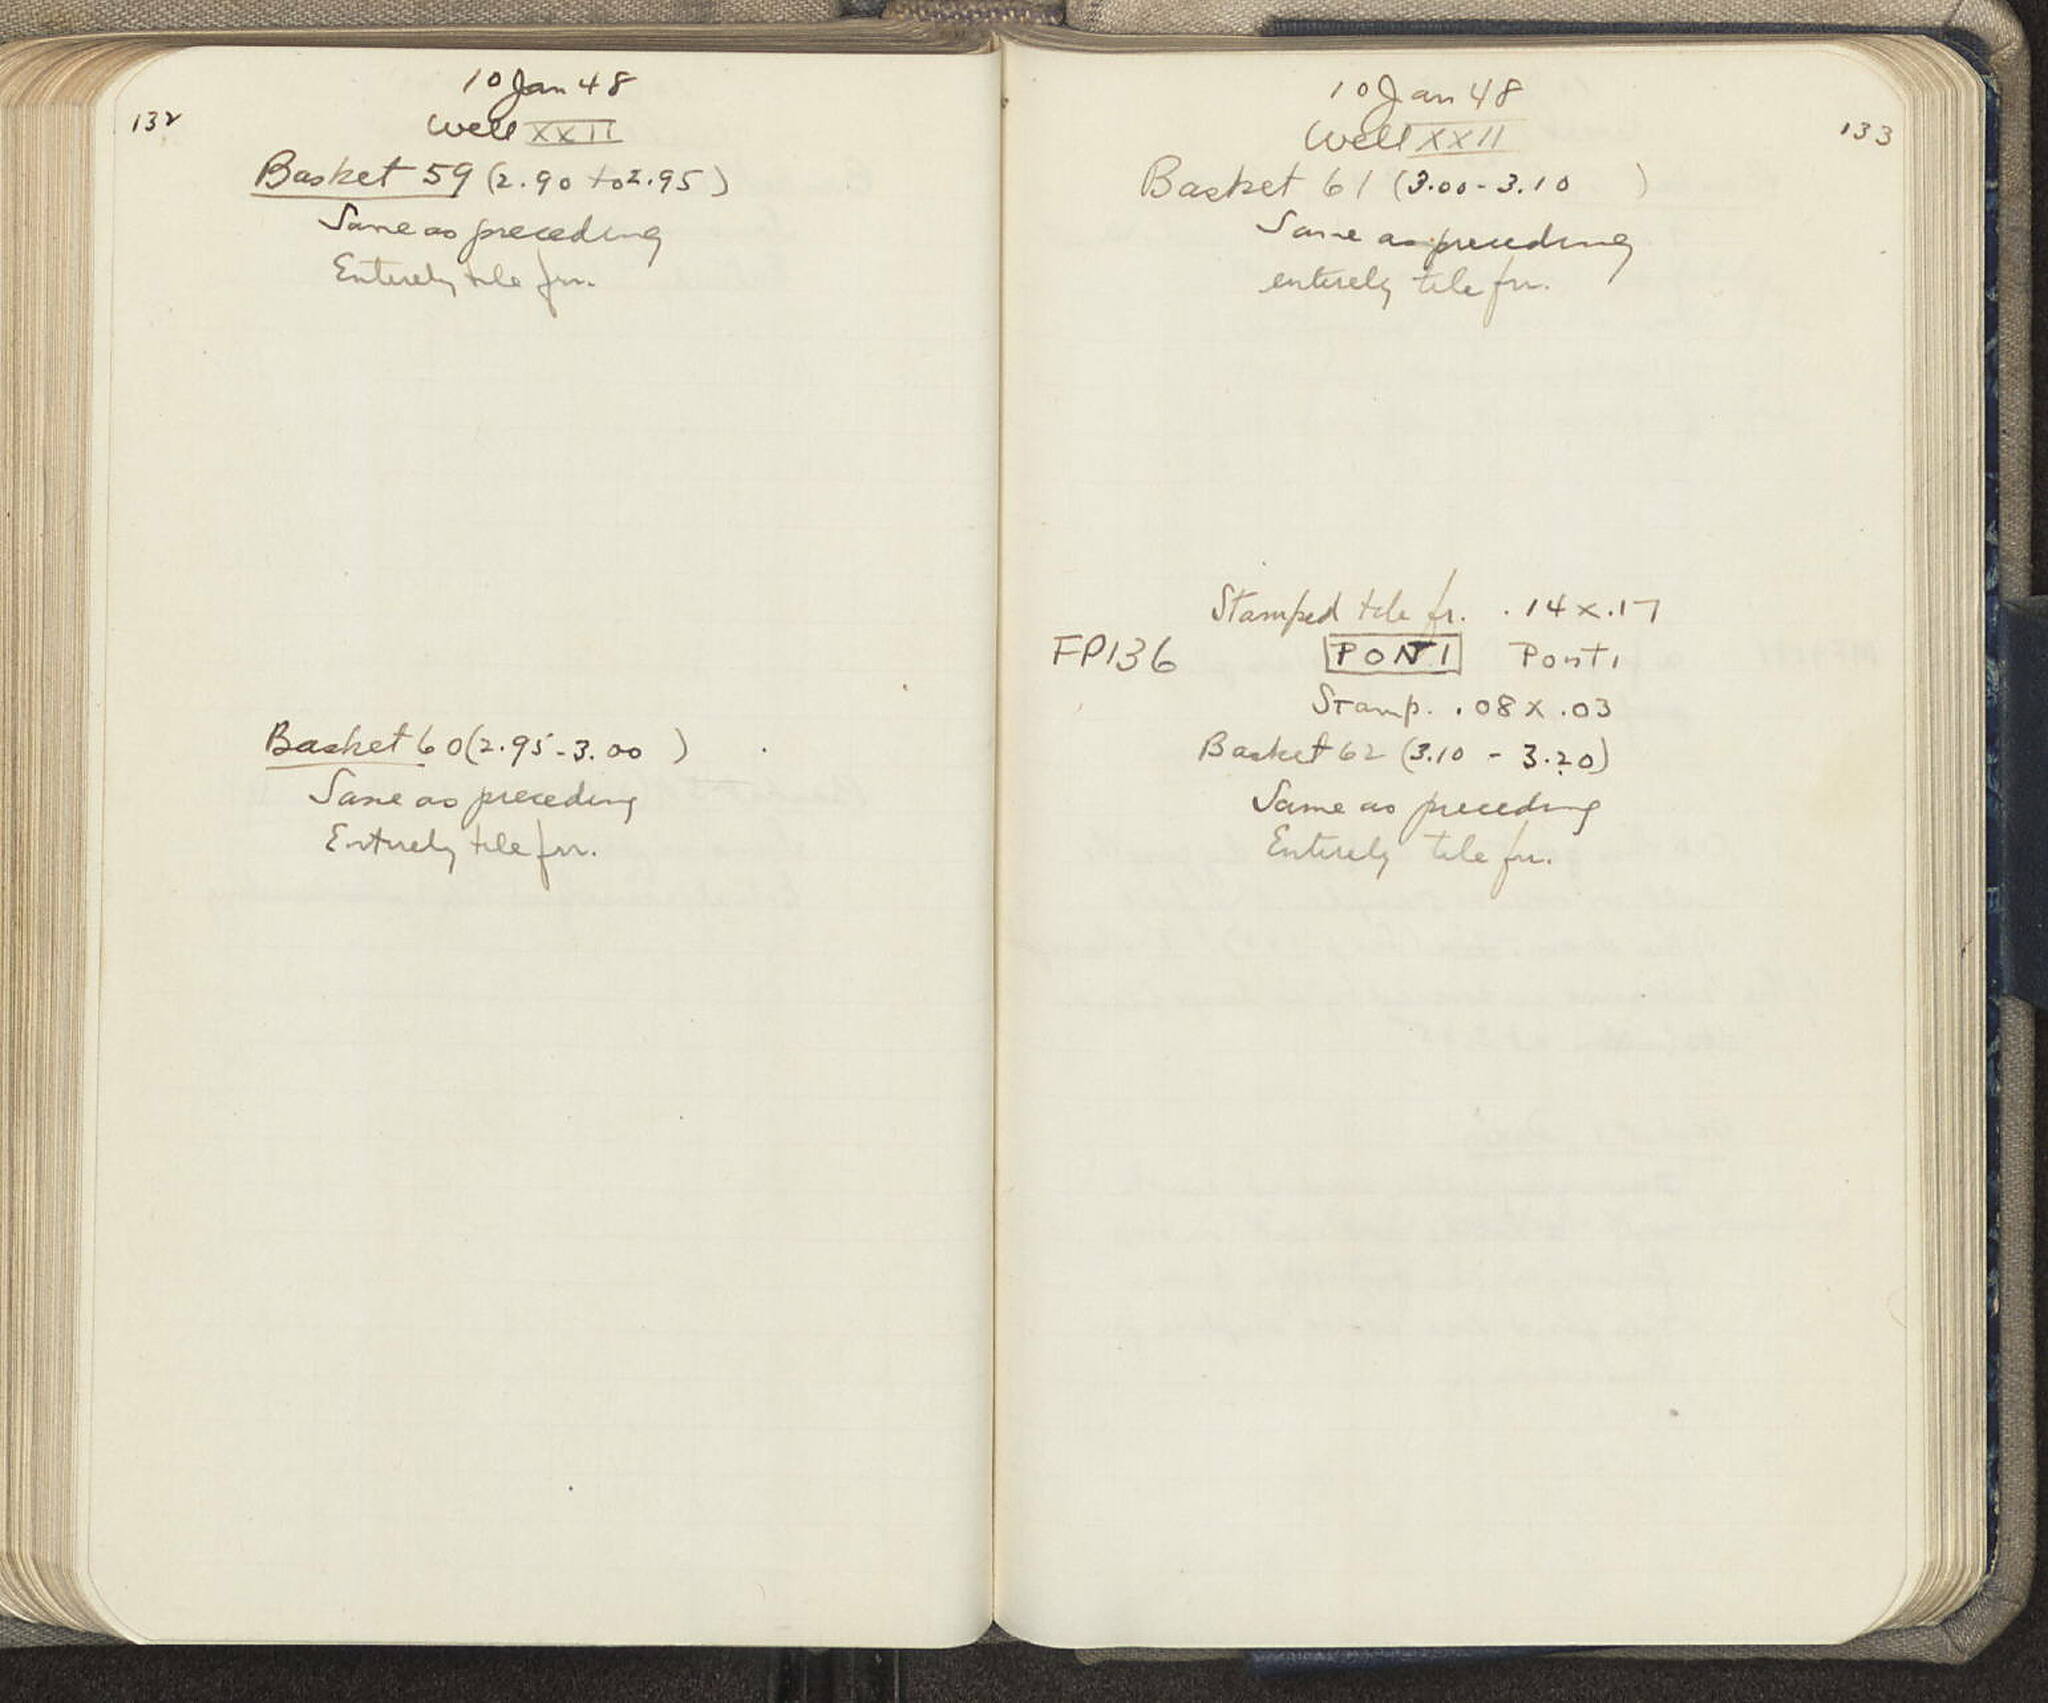 132
10 Jan 48
Well XXII
Basket 59 (2.90 to 2.95)
Same as preceding
Entirely tile frr.
Basket 60 (2.95 - 3.00 )
Same as preceding
Entirely tile frr.
133
10 Jan 48
Well XXII
Basket 61 (3.00 - 3.10 )
Same as preceding
entirely tile frr.
Stamped tile fr. .14 x .17
FP136 PONTI Ponti
Stamp. .08 x .03
Basket 62 (3.10 - 3.20)
Same as preceding
Entirely tile frr.